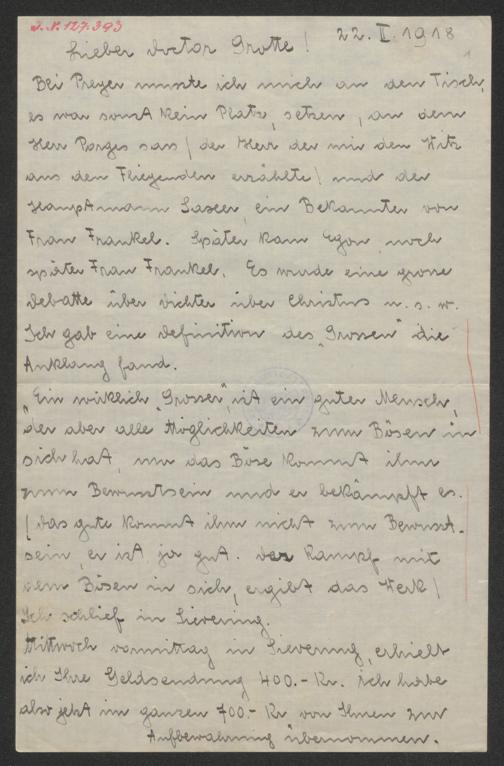 J.N. 127.393
22. II. 1918
Lieber Doctor Grotte!
Bei Preyer musste ich mich an den Tisch,
es war sonst kein Platz, setzen, an dem
Herr Porges sass (der Herr der mir den Witz
aus den Fliegenden erzählte) und der
Hauptmann Saseer, ein Bekannter von
Frau Frankel. Später kam Egon, noch
später Frau Frankel. Es wurde eine grosse
Debatte über Dichter über Christus u. s. w.
Ich gab eine Definition des "Grossen" die
Anklang fand.
"Ein wirklich "Grosser", ist ein guter Mensch,
der aber alle Möglichkeiten zum Bösen in
sich hat, nur das Böse kommt ihm
zum Bewusstsein und er bekämpft es.
(das gute kommt ihm nicht zum Bewusst-
sein, er ist ja gut. Der Kampf mit
dem Bösen in sich, ergibt das Werk)
Ich schlief in Sievering.
Mittwoch vormittag in Sievering, erhielt
ich Ihre Geldsendung 400.- Kr. ich habe
also jetzt im ganzen 700.- Kr von Ihnen zur
Aufbewahrung übernommen.